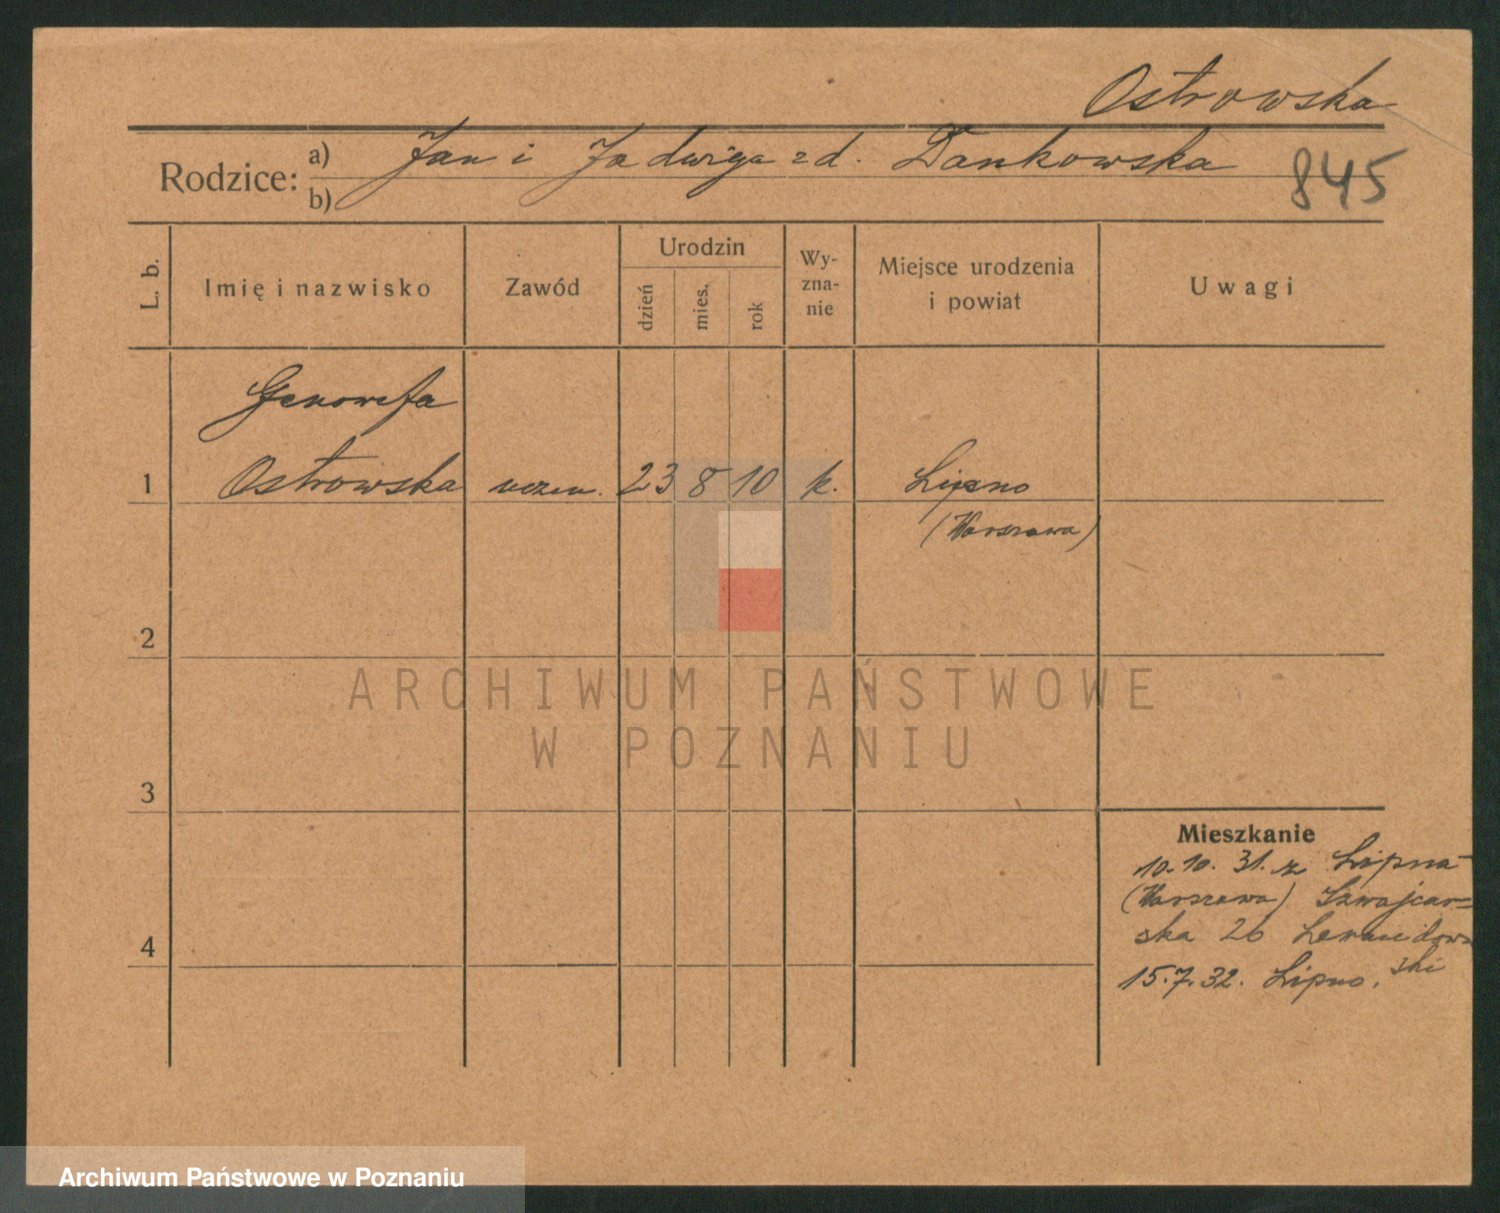 Ostrowska
Rodzice: a) Jan i Jadwiga zd. Dankowska
b)
845
L. b.
Imię i nazwisko
Zawód
Urodzin
dzień
mies.
rok
Wy-
zna-
nie
Miejsce urodzenia
i powiat
Uwagi
Genowefa
1 Ostrowska uczen. 23 8 10 k. Lipno
(Warszawa)
2
ARCHIWUM PAŃSTWOWE
W POZNANIU
3
Mieszkanie
10.10.31. z Lipna
(Warszawa) Szwajcar=
ska 26
4
15.7.32. Lipno.
Archiwum Państwowe w Poznaniu